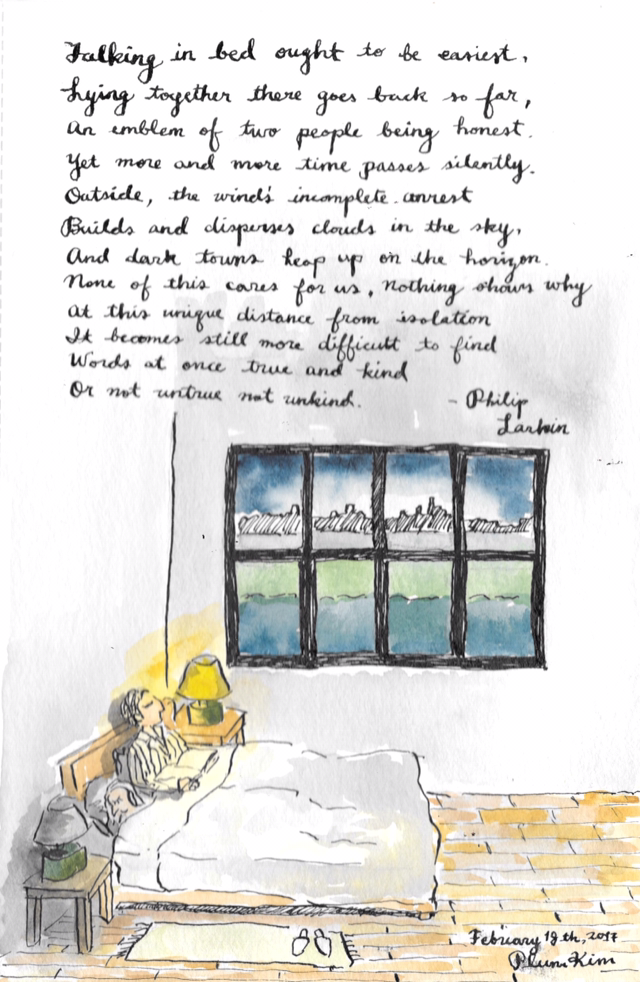 Talking in bed ought to be easiest,
Lying together there goes back so far,
An emblem of two people being honest.
Yet more and more time passes silently.
Outside, the wind's incomplete unrest
Builds and disperses clouds in the sky,
And dark towns heap up on the horizon.
None of this cares for us, nothing shows why
At this unique distance from isolation
It becomes still more difficult to find
Words at once true and kind
Or not untrue not unkind.
- Philip
Larkin
February 19th, 2017
Plum Kim